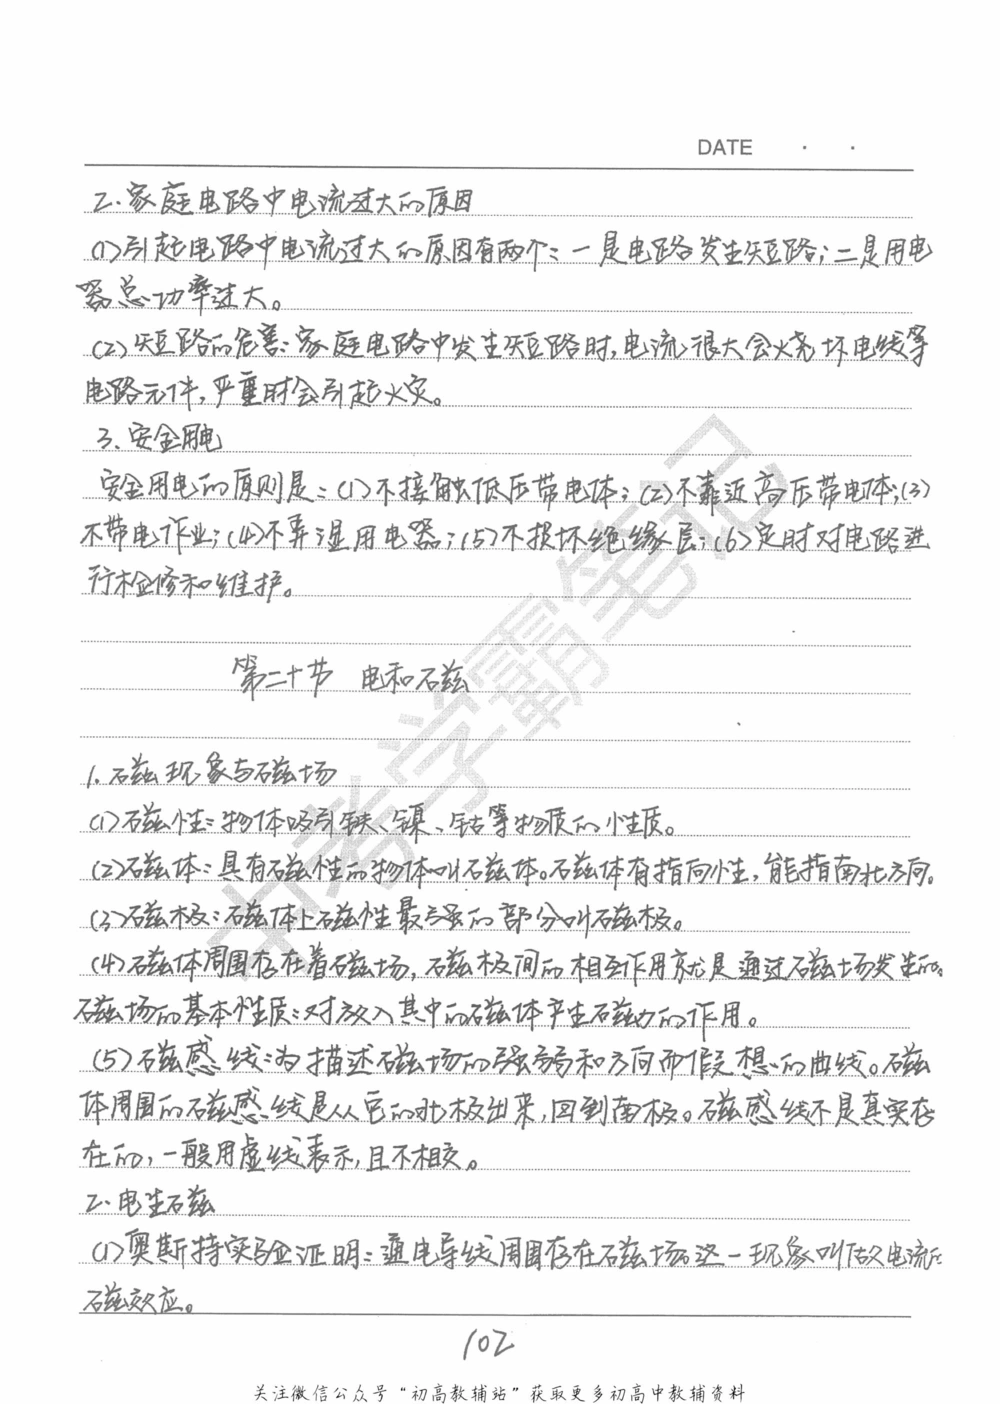 DATE · ·
2.家庭电路中电流过大的原因
(1)引起电路中电流过大的原因有两个:一是电路发生短路;二是用电
器总功率过大。
(2)短路的危害:家庭电路中发生短路时,电流很大会烧坏电线等
电路元件,严重时会引起火灾。
3.安全用电
安全用电的原则是:(1)不接触低压带电体;(2)不靠近高压带电体;(3)
不带电作业;(4)不弄湿用电器;(5)不损坏绝缘层;(6)定时对电路进
行检修和维护。
第二十节 电和磁
1.磁现象与磁场
(1)磁性:物体吸引铁、镍、钴等物质的性质。
(2)磁体:具有磁性的物体叫磁体。磁体有指向性,能指南北方向。
(3)磁极:磁体上磁性最强的部分叫磁极。
(4)磁体周围存在着磁场,磁极间的相互作用就是通过磁场发生的。
磁场的基本性质:对放入其中的磁体产生磁力的作用。
(5)磁感线:为描述磁场的强弱和方向而假想的曲线。磁
体周围的磁感线是从它的北极出来,回到南极。磁感线不是真实存
在的,一般用虚线表示,且不相交。
2.电生磁
(1)奥斯特实验证明:通电导线周围存在磁场。这一现象叫做电流的
磁效应。
102
关注微信公众号“初高教辅站”获取更多初高中教辅资料
中考学霸笔记